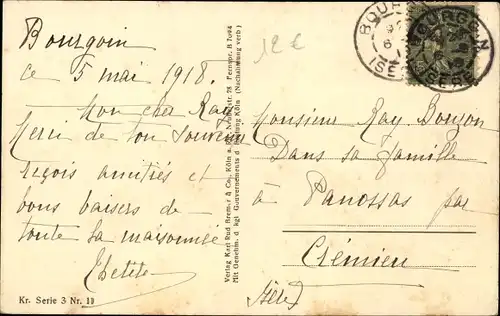 Bourgoin
ce 5 mai 1918.
Mon cher Ray
Merci de ton souvenir
reçois amitiés et
bons baisers de
toute la maisonnée
Kr. Serie 3 Nr.
12 €
Verlag Karl Rud. Bremer & Co., Köln a. Rh. 28 Fernspr. B 7094
Mit Genehm. d. kgl. Gouvernements d. Festung Köln (Nachahmung verb.)
BOURGOIN
ISÈRE
Monsieur Ray
Dans sa famille
à Panossas par
Crémieu
Isère